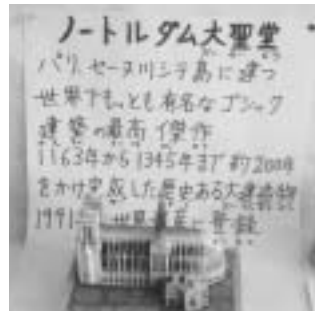 ノートルダム大聖堂
パリ、セーヌ川シテ島に建つ
世界でもっとも有名なゴシック
建築の最高傑作
1163年から1345年まで約200年
をかけ完成した歴史ある大建造物
1991 世界遺産 登録